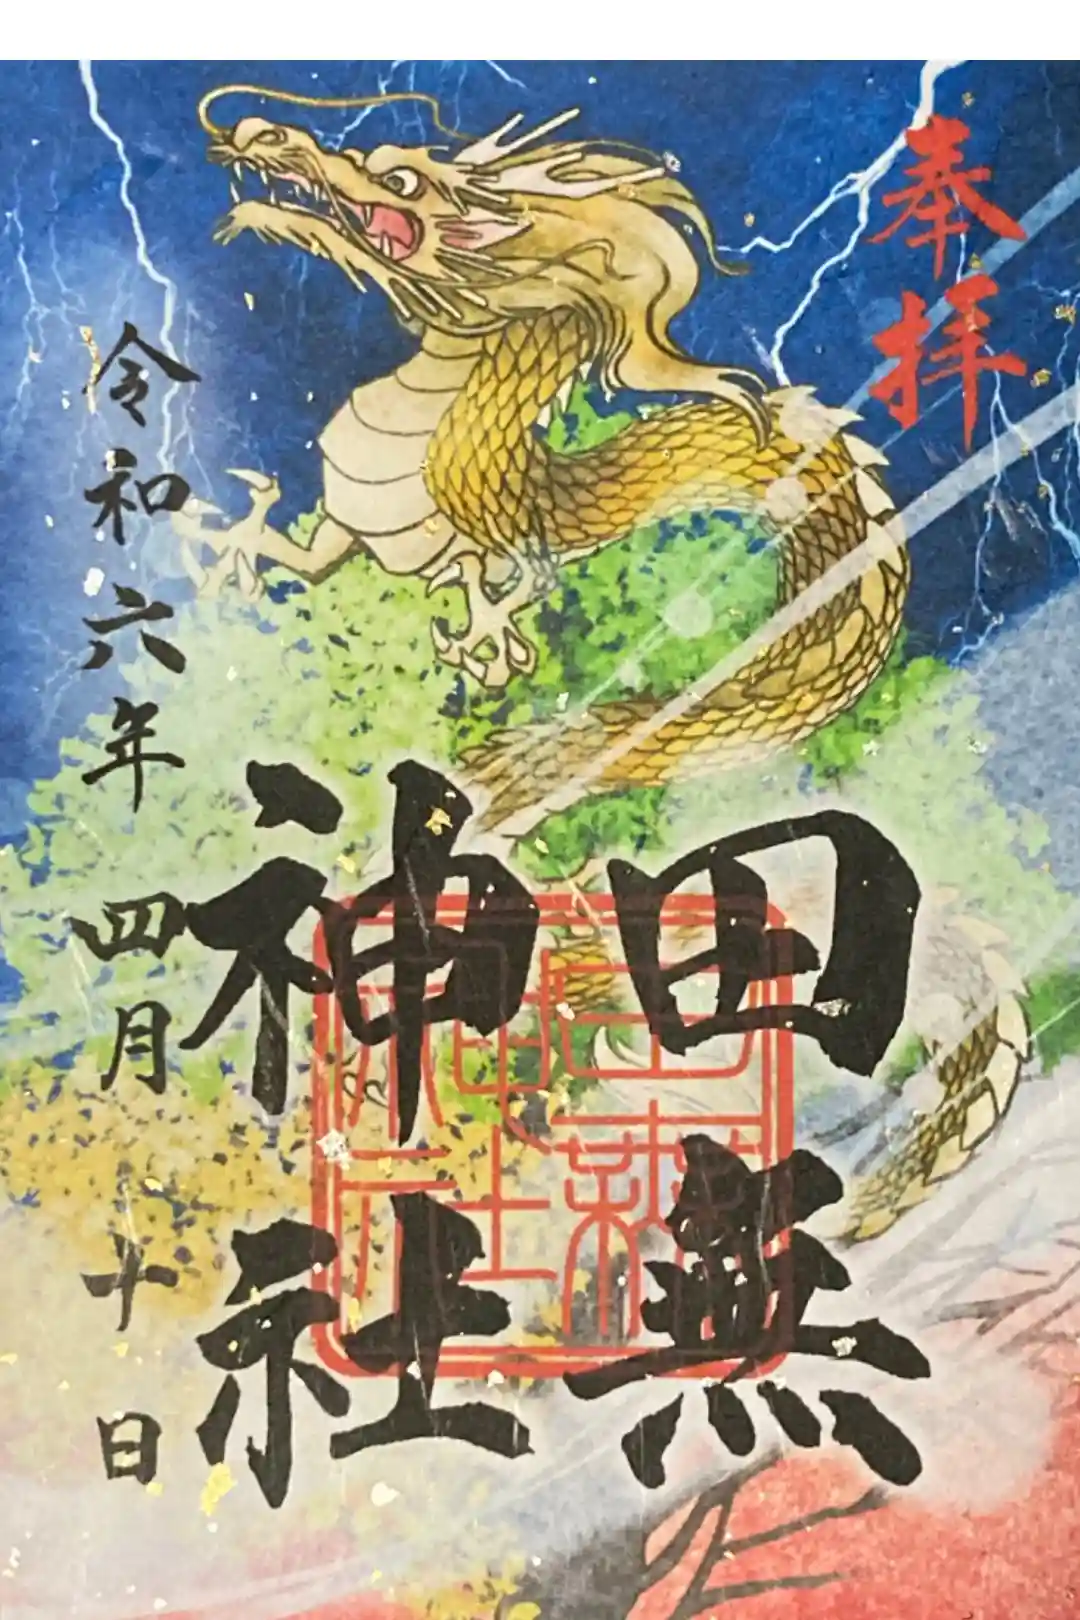 奉拝
田無
神社
令和六年四月十日
田無神社